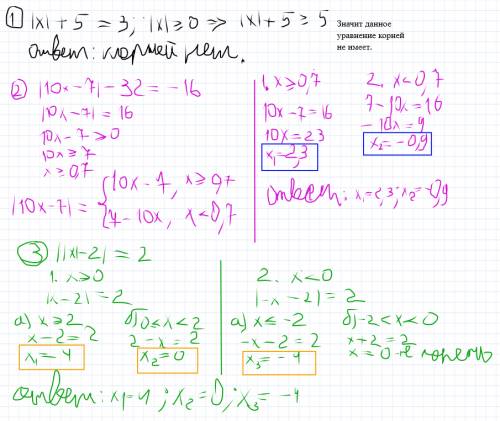 1 |x| + 5 = 3; |x| ≥ 0 ⇒ |x| + 5 ≥ 5
Значит данное
уравнение корней
не имеет.
ответ: корней нет.
2 |10x-7| - 32 = -16
|10x-7| = 16
10x-7 ≥ 0
10x ≥ 7
x ≥ 0,7
|10x-7| = { 10x-7, x ≥ 0,7
7-10x, x < 0,7
1. x ≥ 0,7
10x-7 = 16
10x = 23
x₁ = 2,3
2. x < 0,7
7-10x = 16
-10x = 9
x₂ = -0,9
ответ: x₁ = 2,3; x₂ = -0,9
3 ||x|-2| = 2
1. x ≥ 0
|x-2| = 2
а) x ≥ 2
x-2 = 2
x₁ = 4
б) 0 ≤ x < 2
2-x = 2
x₂ = 0
2. x < 0
|-x-2| = 2
а) x ≤ -2
-x-2 = 2
x₃ = -4
б) -2 < x < 0
x+2 = 2
x = 0 не корень
ответ: x₁ = 4; x₂ = 0; x₃ = -4